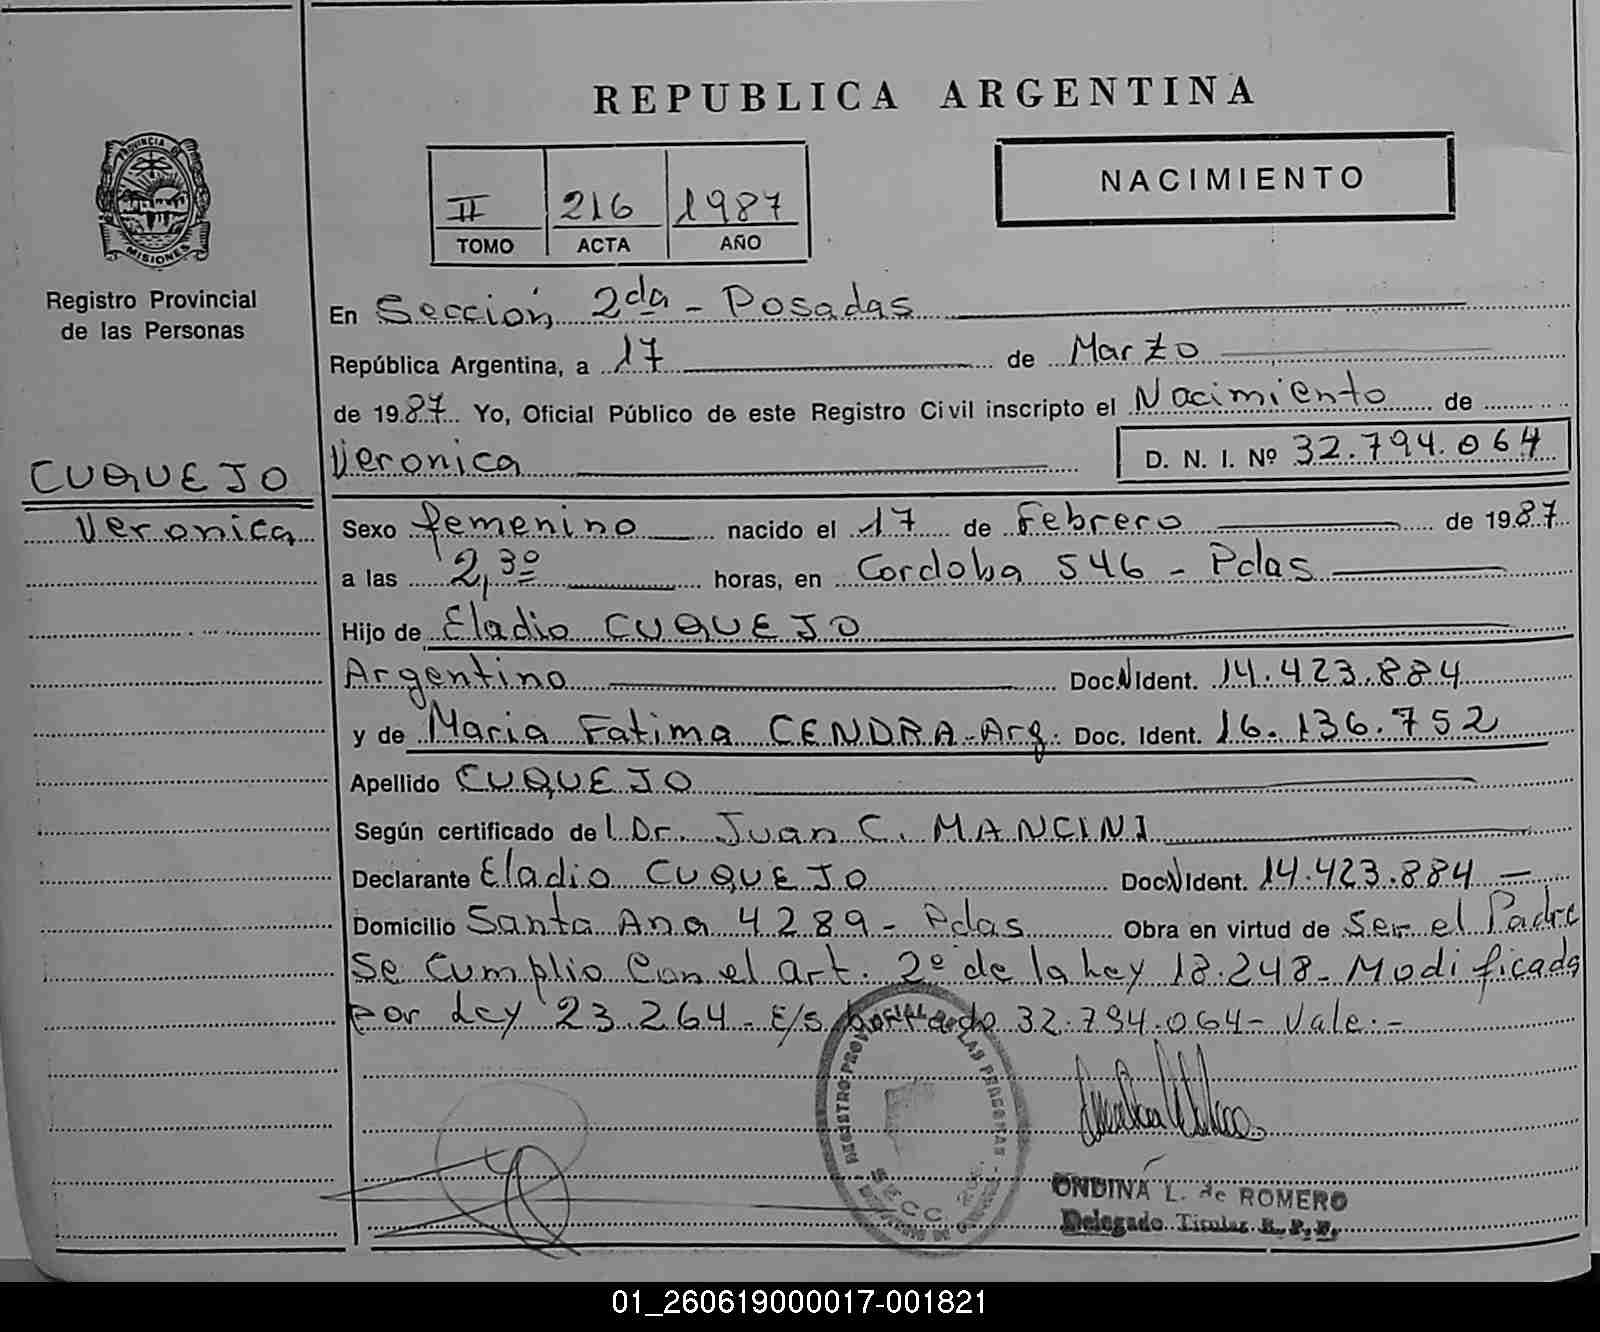 REPUBLICA ARGENTINA
NACIMIENTO
II 216 1987
TOMO ACTA AÑO
PROVINCIA DE
MISIONES
Registro Provincial
de las Personas
CUQUEJO
Veronica
En Sección 2da - Posadas
República Argentina, a 17 de Marzo
de 1987 Yo, Oficial Público de este Registro Civil inscripto el Nacimiento de
Veronica D. N. I. Nº 32.794.064
Sexo femenino nacido el 17 de Febrero de 1987
a las 2,30 horas, en Cordoba 546 - Pdas
Hijo de Eladio CUQUEJO
Argentino Doc.N Ident. 14.423.884
y de Maria Fatima CENDRA-Arg. Doc. Ident. 16.136.752
Apellido CUQUEJO
Según certificado del Dr. Juan C. MANCINI
Declarante Eladio CUQUEJO Doc.N Ident. 14.423.884 -
Domicilio Santa Ana 4289 - Pdas Obra en virtud de Ser el Padre
Se Cumplio Con el art. 2º de la Ley 18.248 - Modificada
por Ley 23.264 - E/s borrado 32.794.064 - Vale.-
REGISTRO PROVINCIAL DE LAS PERSONAS
SECC. 2da.
ONDINA L. de ROMERO
Delegado Titular R. P. P.
01_260619000017-001821